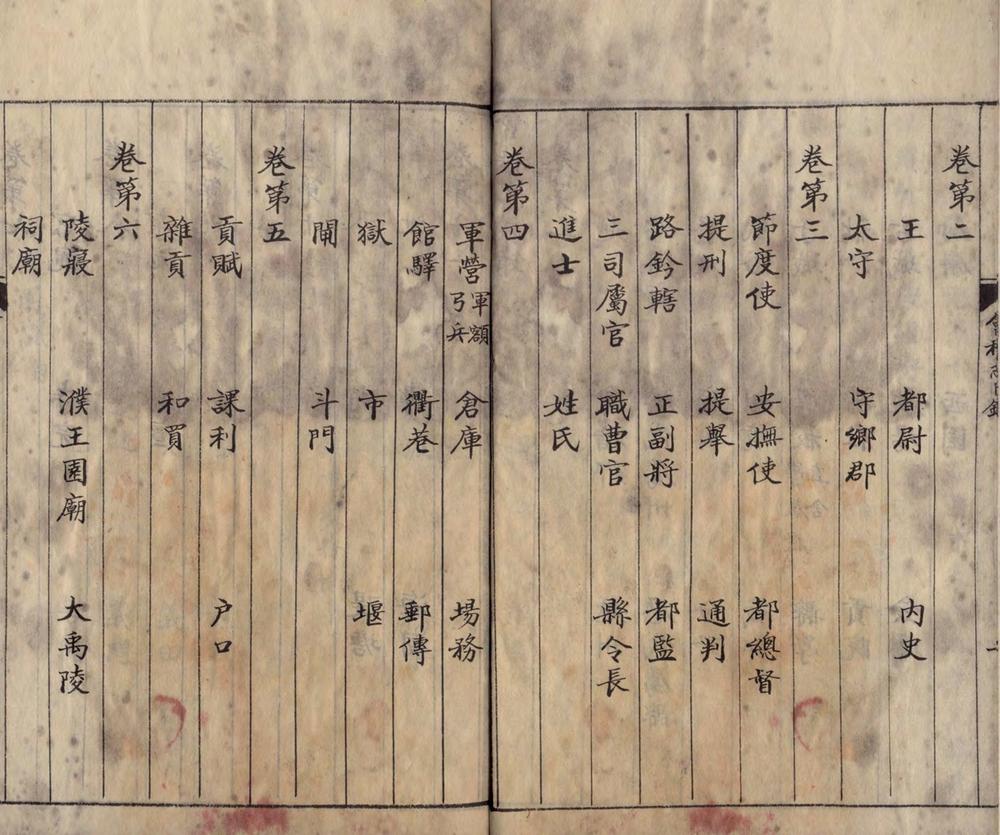 卷第二
王 都尉 內史
太守 守鄉郡
卷第三
節度使 安撫使 都總督
提刑 提舉 通判
路鈐轄 正副將 都監
三司屬官 職曹官 縣令長
進士 姓氏
卷第四
軍營 軍額 弓兵 倉庫 場務
館驛 衢巷 郵傳
獄 市 堰
閘 斗門
卷第五
貢賦 課利 户口
雜貢 和買
卷第六
陵寢 濮王園廟 大禹陵
祠廟